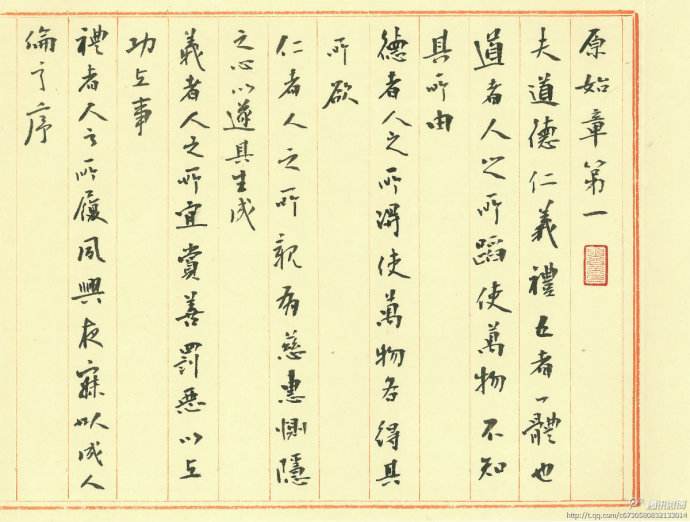 原始章第一
夫道德仁義禮五者一體也
道者人之所蹈使萬物不知
其所由
德者人之所得使萬物各得其
所欲
仁者人之所親有慈惠惻隱
之心以遂其生成
義者人之所宜賞善罰惡以立
功立事
禮者人之所履夙興夜寐以成人
倫之序
http://t.qq.com/c6730580832133014